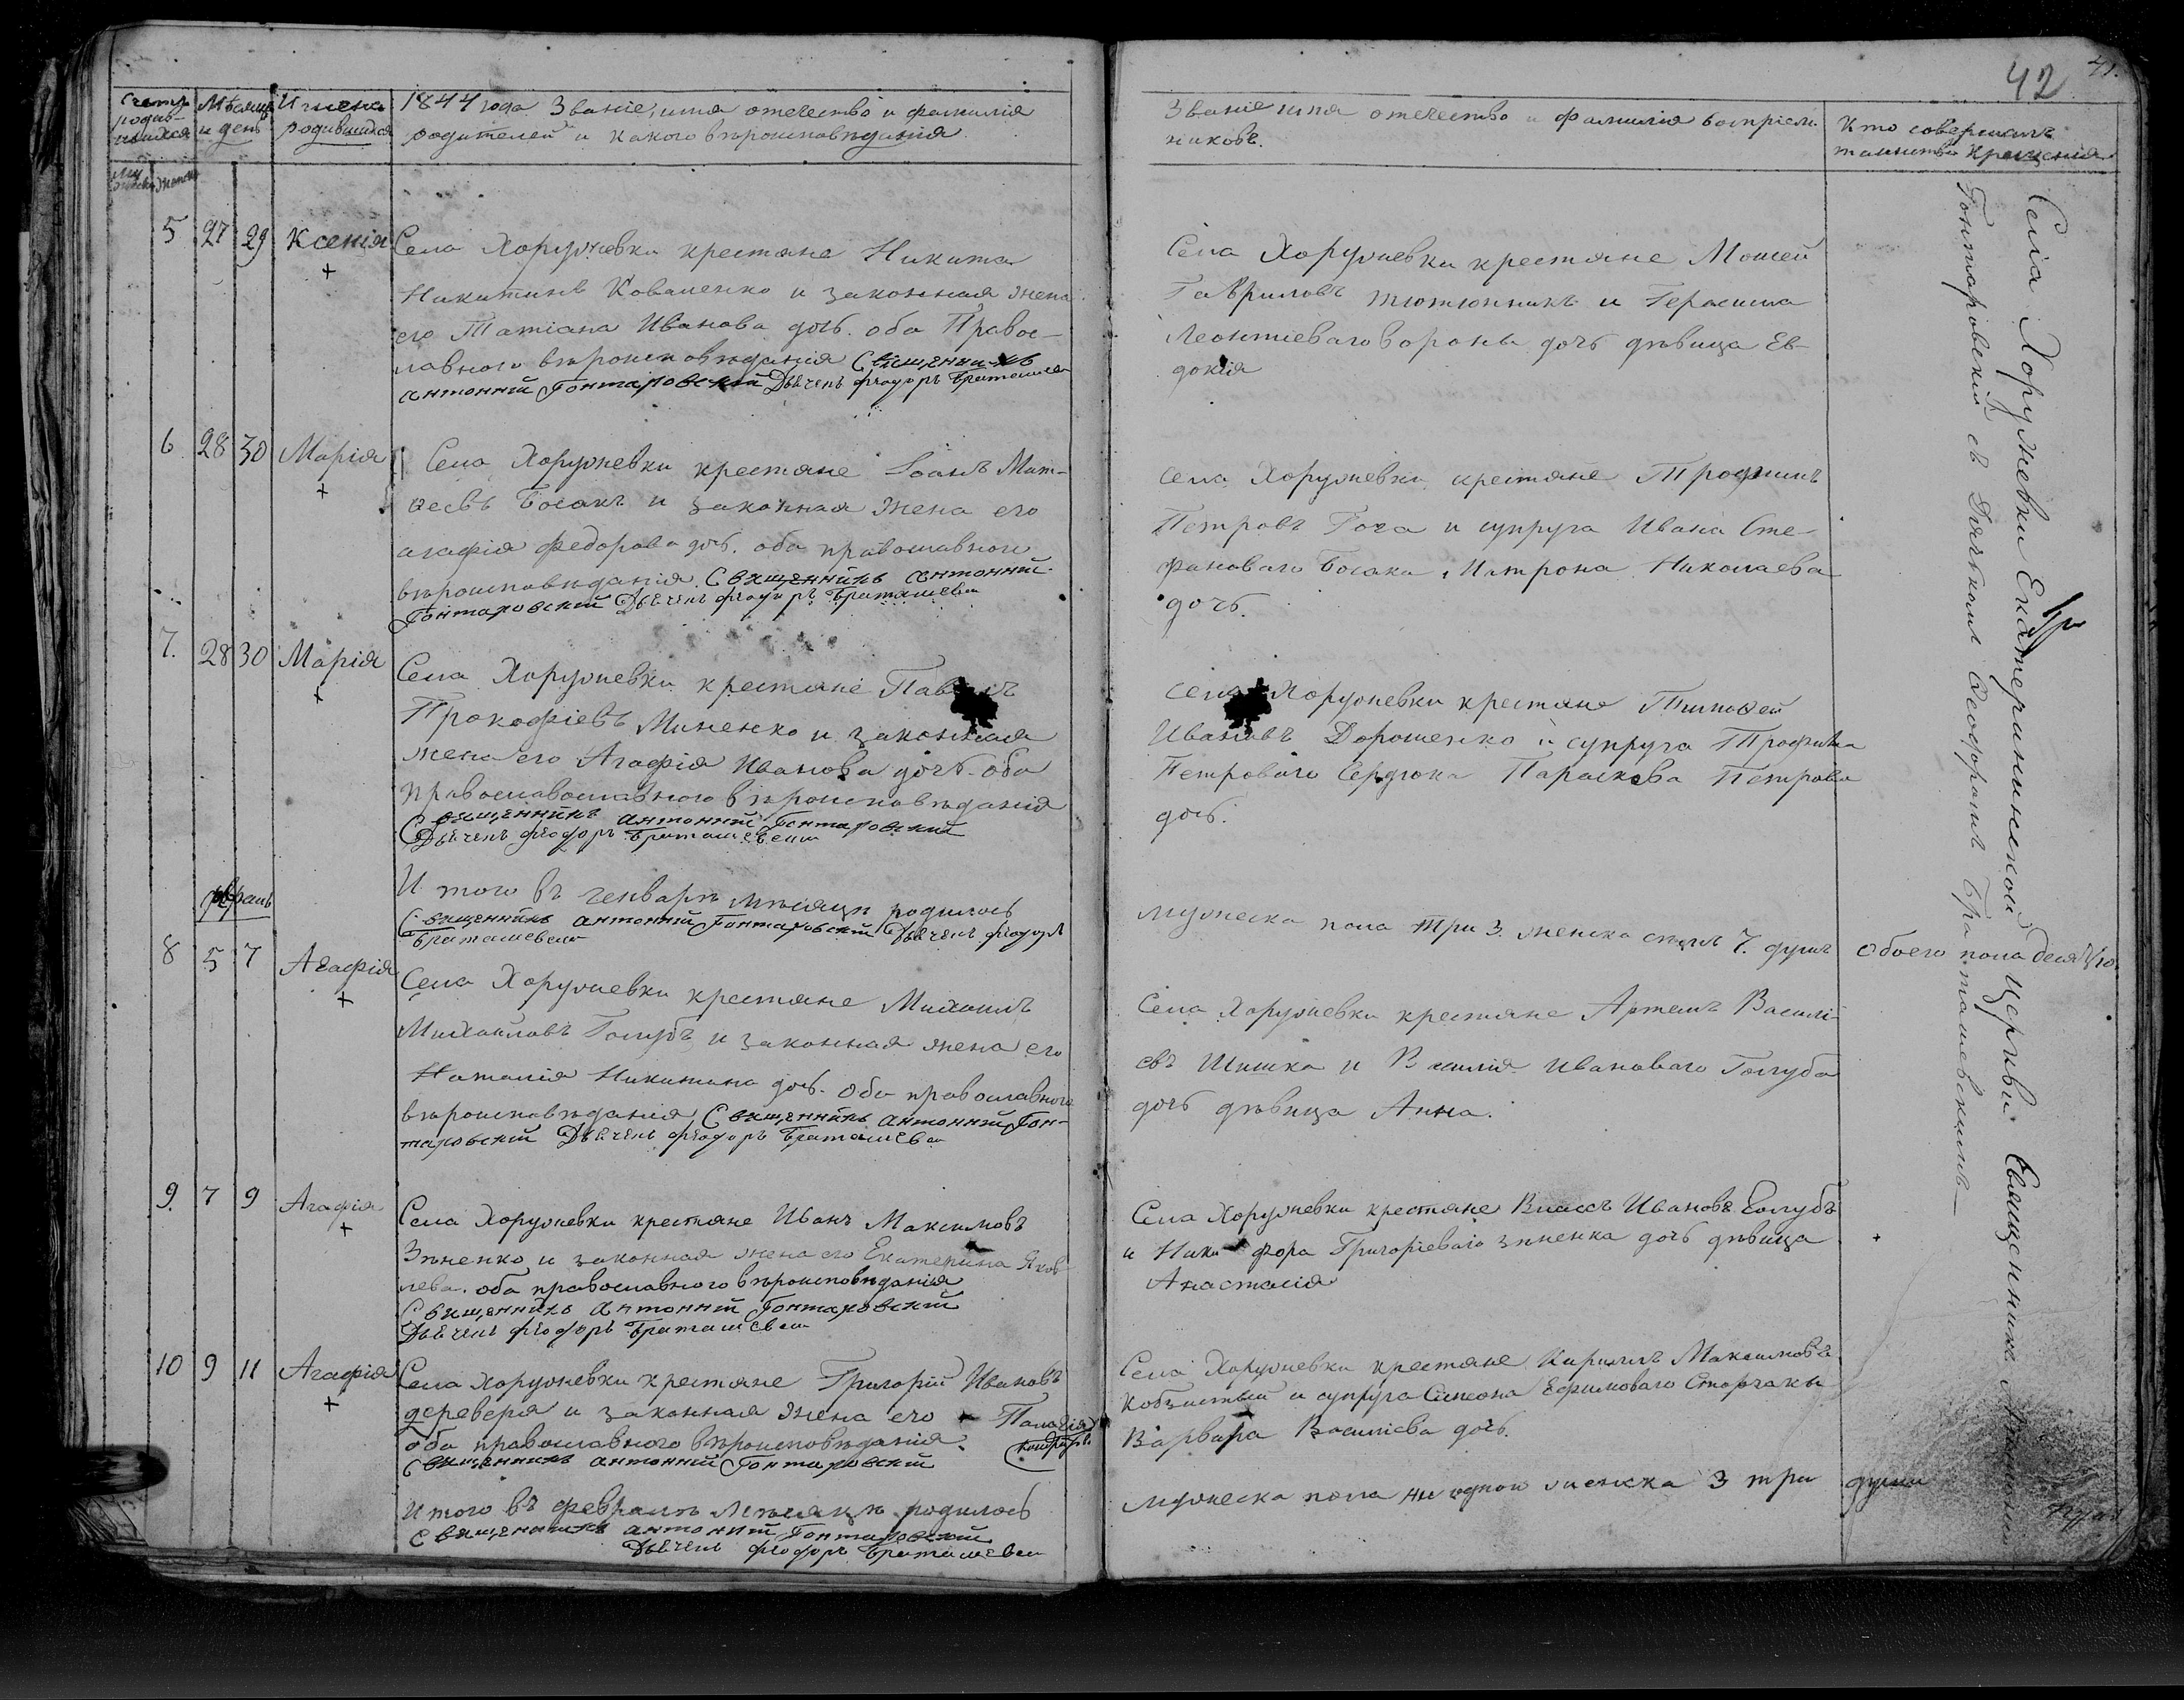 42
41.
Счетъ родив-шихся
Мѣсяцъ и день
Имена родившихся
1844 года Званіе, имя отечество и фамилія
родителей и какого вѣроисповѣданія.
Званіе имя отечество и фамилія воспріем-
никовъ.
Кто совершалъ
таинство крещенія
5 27 29 Ксенія
Села Хоружевки крестяне Никита
Никитинъ Коваленко и законная жена
его Татіана Иванова дочь. оба Правос-
лавного вѣроисповѣданія Священникъ
Антоній Гонтаровскій Дьячекъ Феодоръ Браташевскі
Села Хоружевки крестяне Моисей
Гавриловъ Тютюнникъ и Герасима
Леонтіеваго Вороны дочь дѣвица Ев-
докія
6 28 30 Марія
Села Хоружевки крестяне Іоанъ Мат-
ѳеевъ Босакъ и законная жена его
Агафія Федорова дочь. оба православного
вѣроисповѣданія. Священникъ Антоній
Гонтаровскій Дьячекъ Феодоръ Браташевскі
Села Хоружевки крестяне Трофимъ
Петровъ Гога и супруга Ивана Сте-
фановаго Босака, Матрона Николаева
дочь.
7. 28 30 Марія
Села Хоружевки крестяне
Прокофіевъ Миненко и законная
жена его Агафія Иванова дочь. оба
православославного вѣроисповѣданія
Священникъ Антоній Гонтаровскій
Дьячекъ Феодоръ Браташевскі
Села Хоружевки крестяне Тимоѳей
Ивановъ Дорошенко и супруга Трофима
Петроваго Сердюка Параскева Петрова
дочь.
Итого въ генварѣ мѣсяцѣ родилось
Священникъ Антоній Гонтаровскій Дьячекъ Феодоръ
Браташевскі
мужеска пола три 3. женска седмъ 7. душъ
Обоего пола десять 10.
Февраль
8 5 7 Агафія
Села Хоружевки крестяне Михаилъ
Михаиловъ Голубъ и законная жена его
Наталія Никитина дочь. оба православного
вѣроисповѣданія Священникъ Антоній Гон-
таровскій Дьячекъ Феодоръ Браташевскі
Села Хоружевки крестяне Артемъ Василі-
евъ Шишка и Василія Ивановаго Голуба
дочь дѣвица Анна.
9. 7 9 Агафія
Села Хоружевки крестяне Иванъ Максимовъ
Зѣненко и законная жена его Екатерина Яков-
лева. оба православного вѣроисповѣданія
Священникъ Антоній Гонтаровскій
Дьячекъ Феодоръ Браташевскі
Села Хоружевки крестяне Власъ Ивановъ Голубъ
и Никифора Григоріеваго Зѣненка дочь дѣвица
Анастасія
10 9 11 Агафія
Села Хоружевки крестяне Григорій Ивановъ
Дереверя и законная жена его Палагія
оба православного вѣроисповѣданія.
Священникъ Антоній Гонтаровскій
Села Хоружевки крестяне Кирилъ Максимовъ
Кобзистый и супруга Симеона Ефимоваго Сторчака
Варвара Василіева дочь.
Итого въ февралѣ мѣсяцѣ родилось
Священникъ Антоній Гонтаровскій
Дьячекъ Феодоръ Браташевскі
мужеска пола ни одной женска 3 три
души
Села Хоружевки Екатерининской церкви Священникъ Антоній
Гонтаровскій съ Дьячкомъ Ѳеодоромъ Браташевскимъ